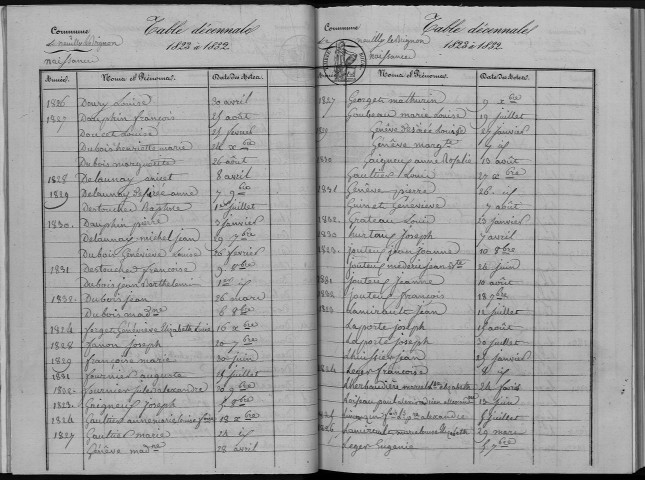 Commune
de neuilly le Brignon
naissance
Table décennale
1823 à 1832.
Année. Noms et Prénoms. Date des Actes.
1826 Doury Louise 30 avril
1827 Dauphin françois 25 août
Doucet Louise 21 fevrier
Dubois henriette marie 24 xbre
Dubois marguerite 26 août
1828 Delaunay 8 avril
1829 Delaunay désirée anne 7 9bre
Destouches 1er juillet
1830. Dauphin pierre 3 janvier
Delaunay michel jean 19 7bre
Dubois Geneviève Louise 26 fevrier
1831 Destouches françoise 9 8bre
Dubois jean Barthelemi 1er
1832. Dubois jean 26 mars
Dubois mad.ne 6 8bre
1824 forget Geneviève Elizabeth Louise 16 xbre
1828 fanon Joseph 10 7bre
1829 françoise marie 30 juin
1831 fournier auguste 18 juillet
1832. fournier jules alexandre 20 9bre
1823. Gaigneux joseph 5 8bre
1824 Gaultier anne marie Louise 18 xbre
1827 Gaultier marie 24
Genêve mad.ne 28 avril
Commune
de neuilly le Brignon
naissance
Table décennale
1823 à 1832.
Année Noms et Prénoms. Date des Actes.
1827 Georget mathurin 9 xbre
Gaubeau marie Louise 19 juillet
1829 Genêve désirée Louise 27 janvier
Genêve margte
1830 Gaigneux anne Rosalie 13 août
Gaultier Louis 27 xbre
1831 Genêve pierre 26
Guinet Geneviève 7 août
1832. Grateau Louis 23 janvier
1830 hurtau joseph 7 avril
1823. jouteux jeanne 10 8bre
26 juin
jouteux jeanne 10 août
1832 jouteux françois 18 7bre
1823 Lamirault jean 12 juillet
Laporte joseph 1er août
Laporte joseph 30 juillet
Lhuissier jean 21 janvier
1824 Leger françoise 8
Lherbaudière Elizabeth 24
13 juin
5 juillet
Lamirault marie Louise Elizabeth 29 mars
Leger Eugenie 5 7bre